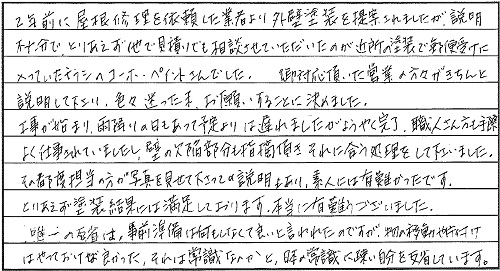 2年前に屋根修理を依頼した業者より外壁塗装を提案されましたが、説明
不十分で、とりあえず他で見積りでも相談させていただいたのが近所の塗装で郵便受けに
入っていたチラシのユーホーペイントさんでした。 即対応頂いた営業の方がきちんと
説明して下さり、色々迷った末、お願いすることに決めました。
工事が始まり、雨降りの日もあって予定よりは遅れましたがようやく完了、職人さん方も手際
よく仕事されていましたし、壁の欠陥部分も指摘頂き それに合う処理をして下さいました。
その都度担当の方が写真を見せて下さっての説明もあり、素人には有難かったです。
とりあえず塗装結果には満足しております。本当に有難うございました。
唯一の反省は、事前準備は何もしなくて良いと言われたのですが、物の移動や片付け
はやっておけば良かった、それは常識なんかと、日々の常識に疎い自分を反省しています。